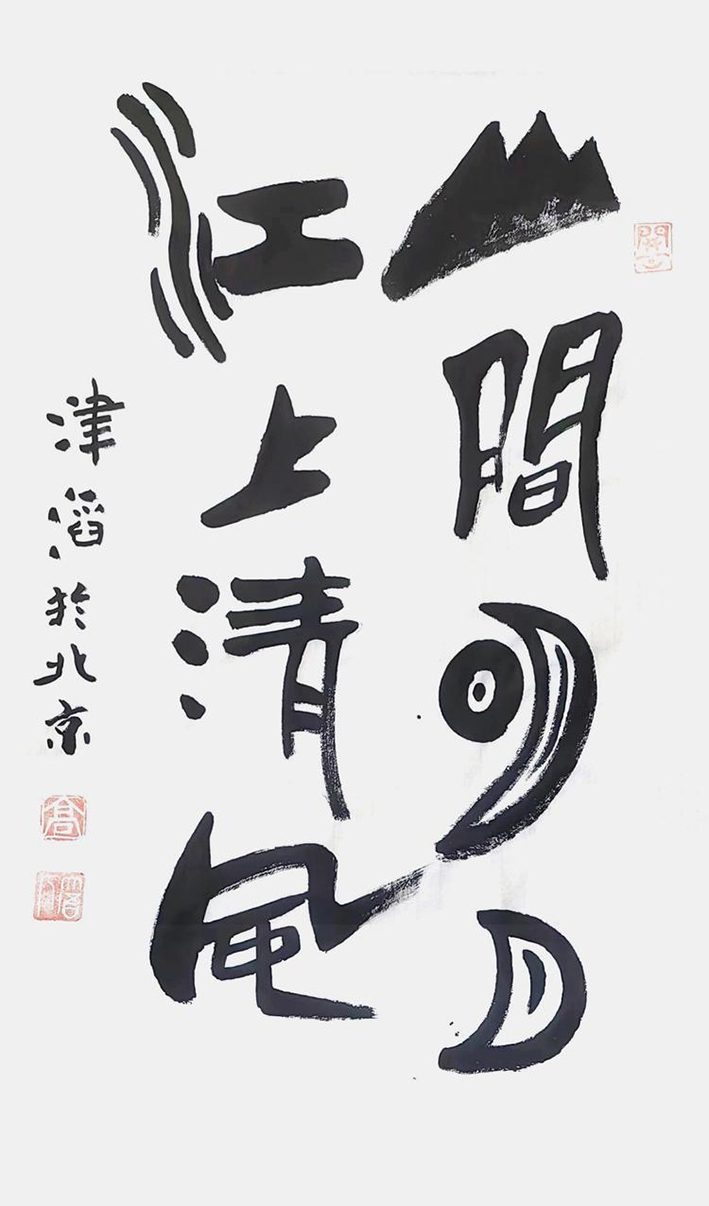 山間明月
江上清風
津滔於北京